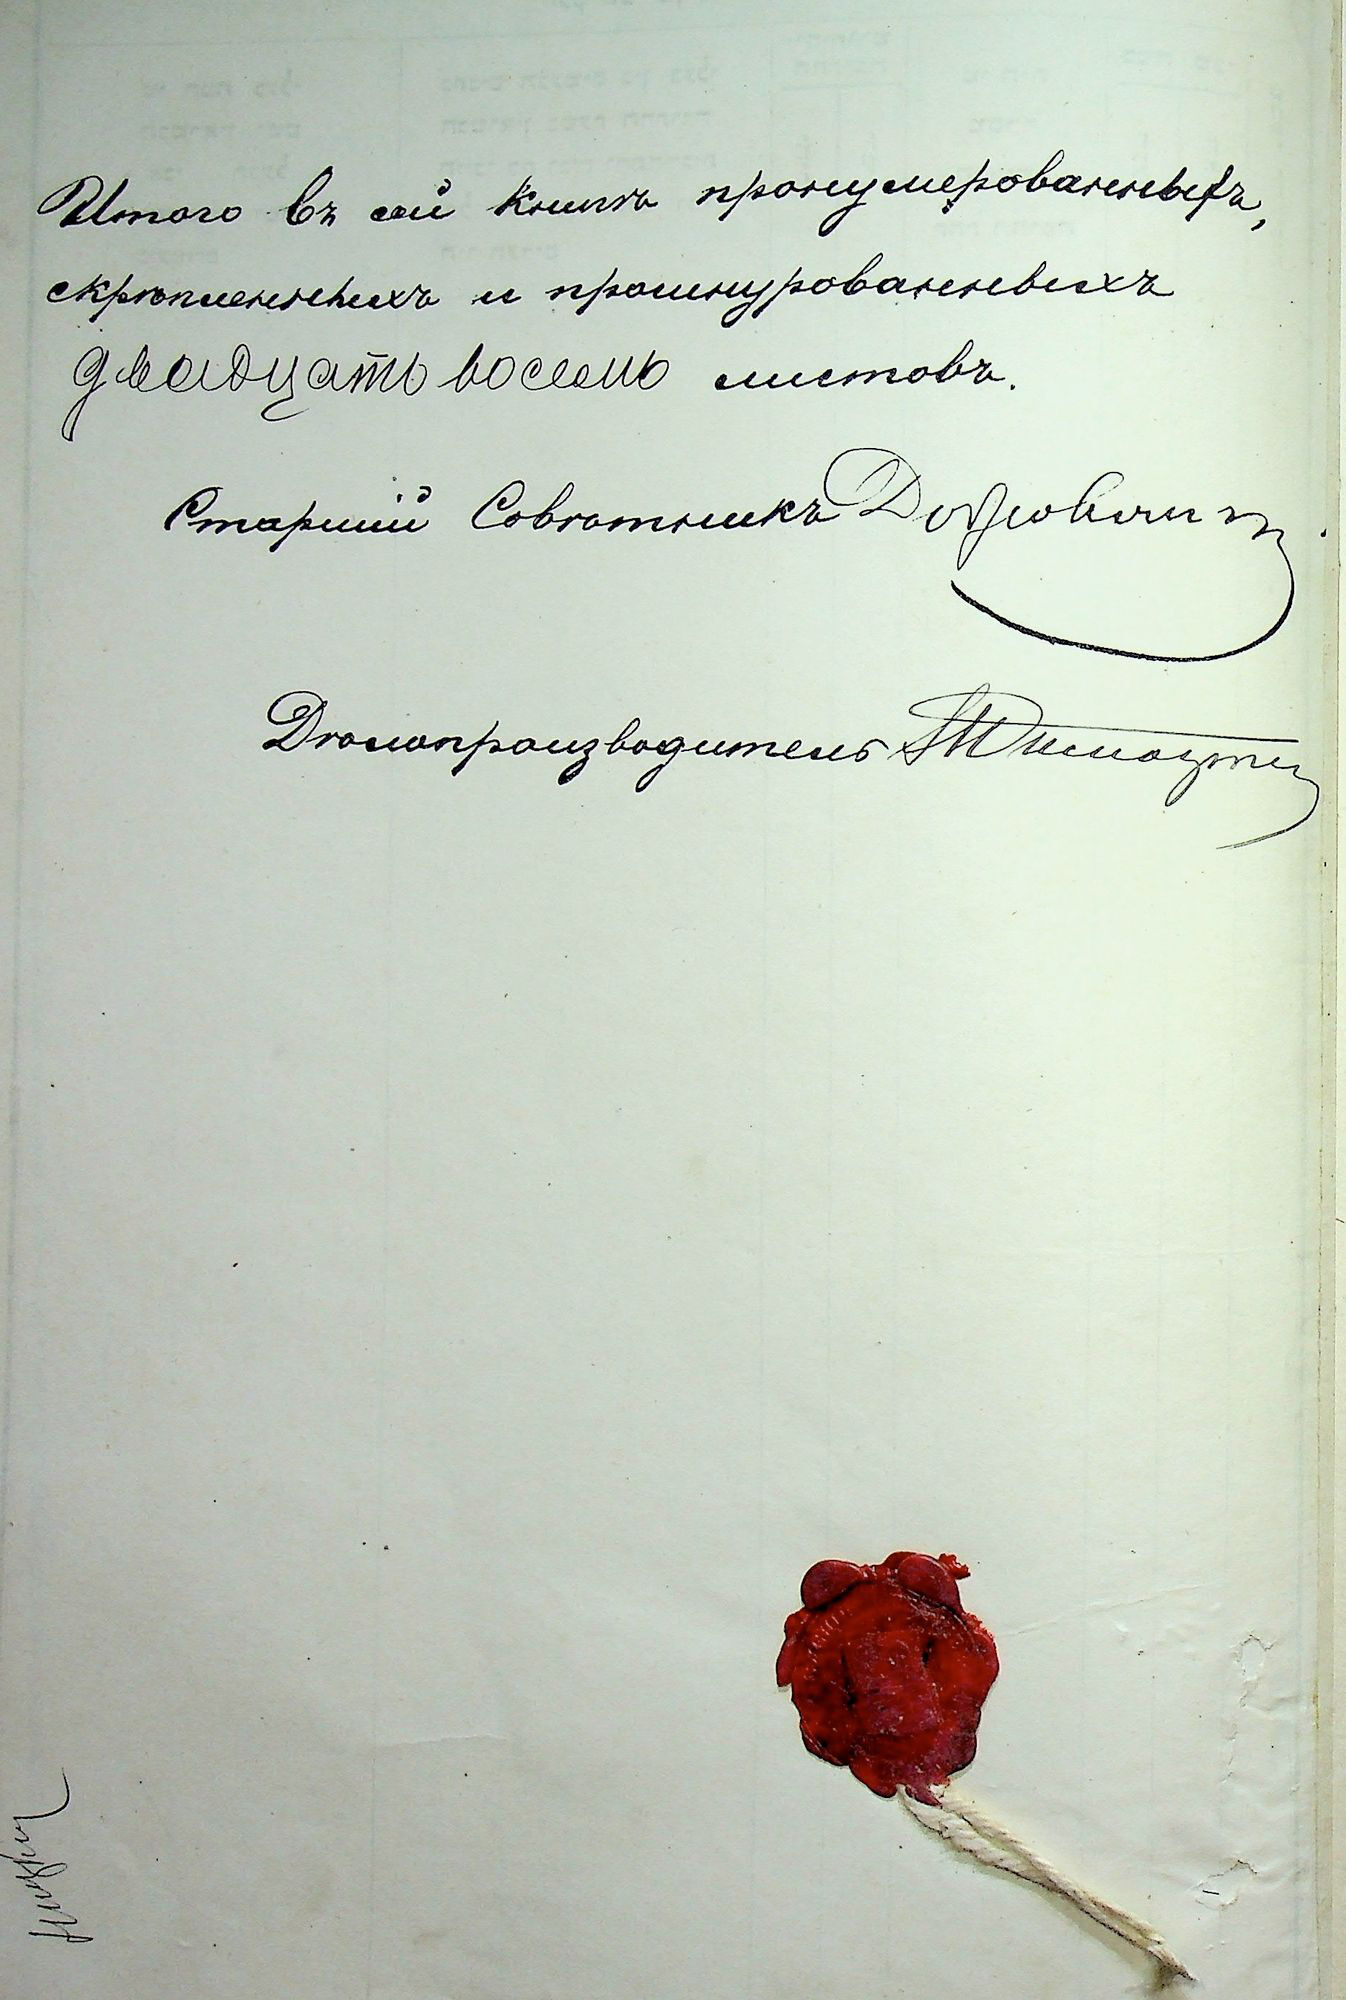 Итого въ сей книгѣ пронумерованныхъ,
скрѣпленныхъ и прошнурованныхъ
двадцать восемь листовъ.
Старшій Совѣтникъ
Дѣлопроизводитель